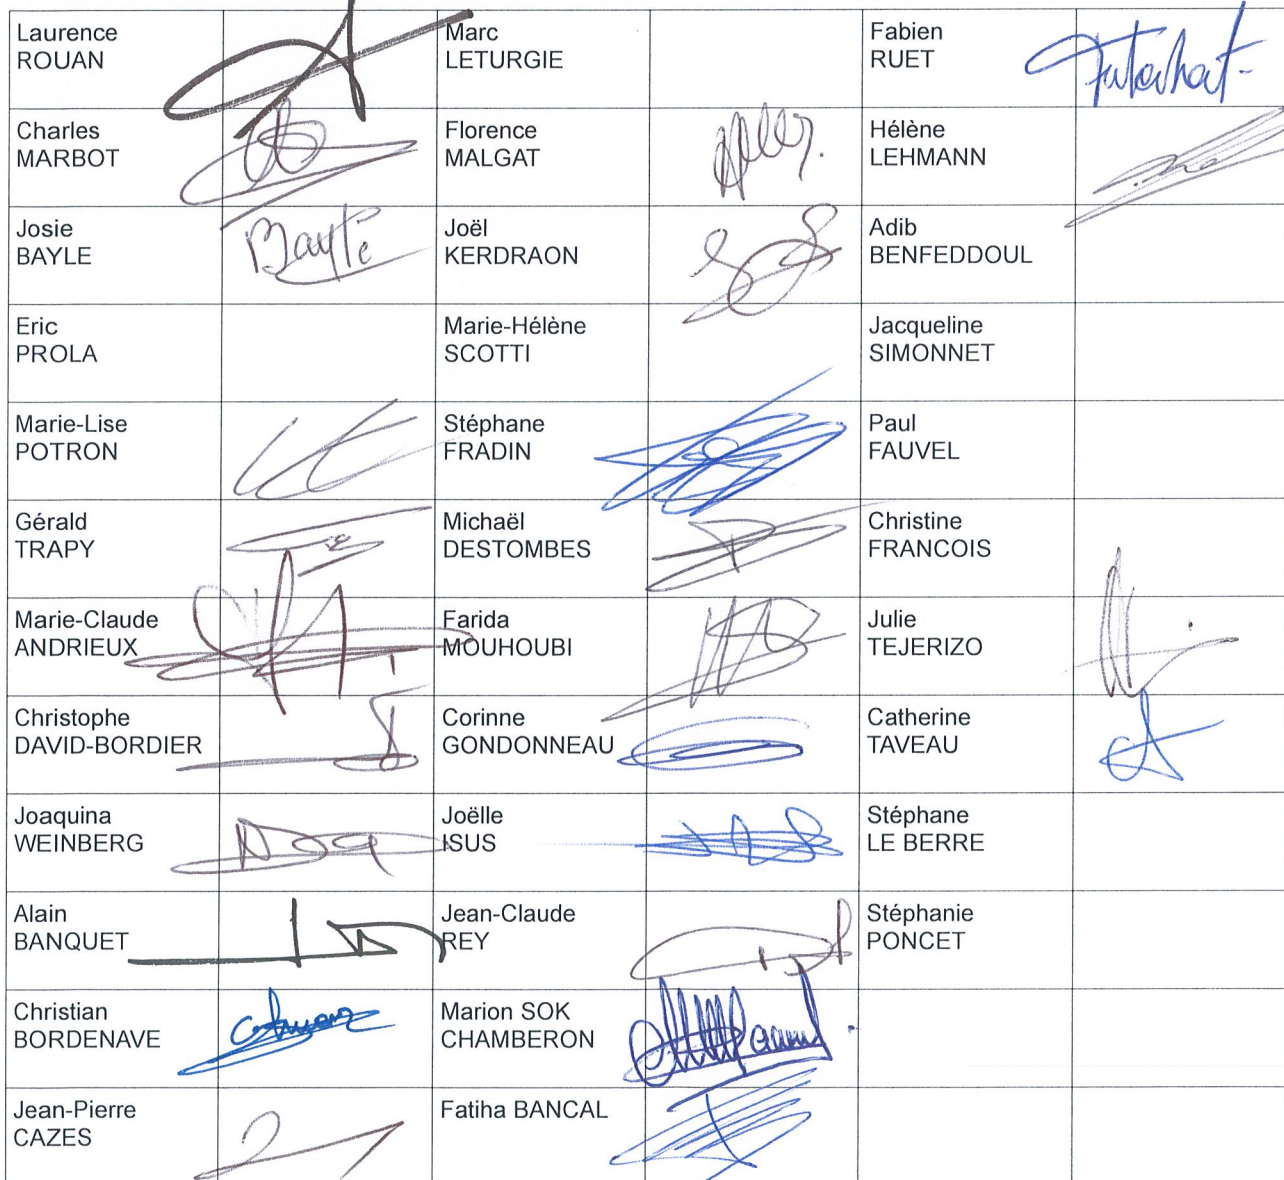 Laurence
ROUAN
Marc
LETURGIE
Fabien
RUET
Charles
MARBOT
Florence
MALGAT
Hélène
LEHMANN
Josie
BAYLE
Bayle
Joël
KERDRAON
Adib
BENFEDDOUL
Eric
PROLA
Marie-Hélène
SCOTTI
Jacqueline
SIMONNET
Marie-Lise
POTRON
Stéphane
FRADIN
Paul
FAUVEL
Gérald
TRAPY
Michaël
DESTOMBES
Christine
FRANCOIS
Marie-Claude
ANDRIEUX
Farida
MOUHOUBI
Julie
TEJERIZO
Christophe
DAVID-BORDIER
Corinne
GONDONNEAU
Catherine
TAVEAU
Joaquina
WEINBERG
Joëlle
ISUS
Stéphane
LE BERRE
Alain
BANQUET
Jean-Claude
REY
Stéphanie
PONCET
Christian
BORDENAVE
Marion SOK
CHAMBERON
Jean-Pierre
CAZES
Fatiha BANCAL